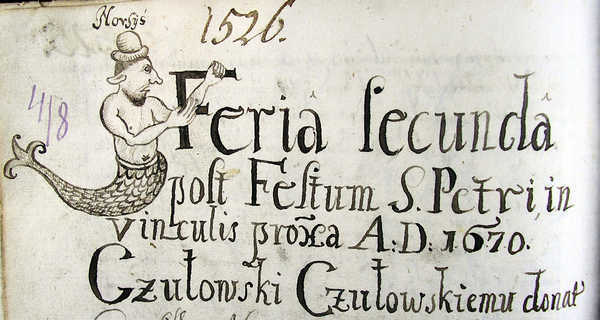 Norsÿs
1526.
4/8
Feriâ ſecundâ
poſt Feſtum S. Petri, in
vinculis proxa A:D: 1670.
Czułowſki Czułowskiemu donat